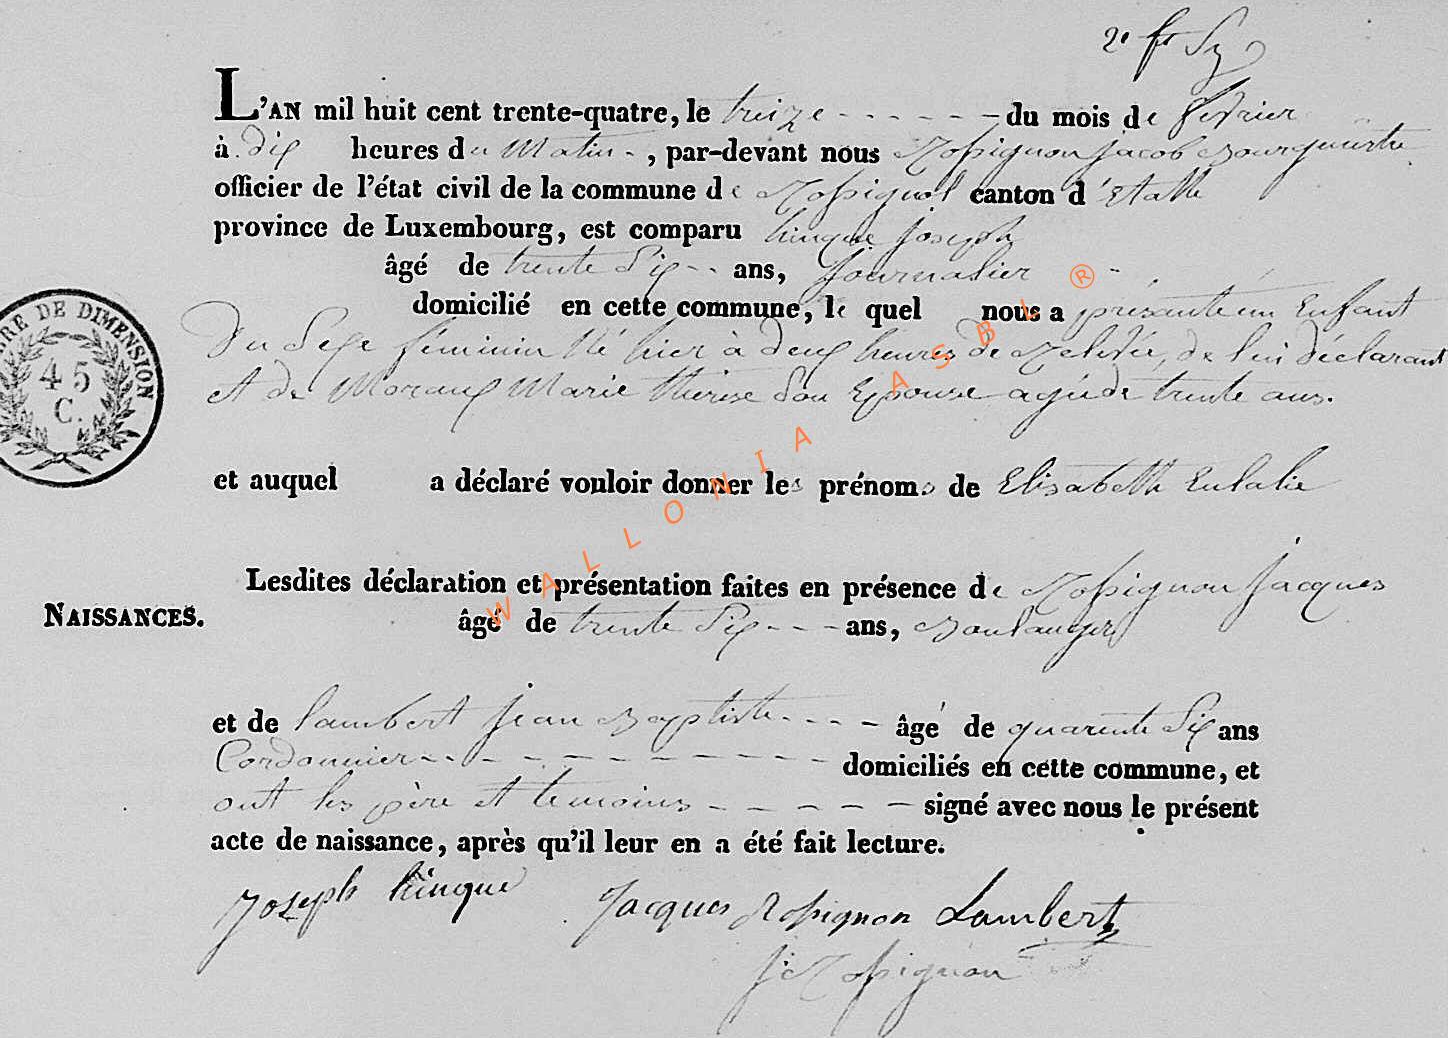 2e fr Sy
L'AN mil huit cent trente-quatre, le treize du mois de fevrier
à dix heures du Matin, par-devant nous Rossignon Jacob Bourguestre
officier de l'état civil de la commune de Rossignol canton d'Etalle
province de Luxembourg, est comparu hinque Joseph
âgé de trente Six ans, Journalier
domicilié en cette commune, le quel nous a présenté un Enfant
Du Sexe féminin Né hier à deux heures de Relevée, de lui déclarant
et de Moraux Marie thérèse Son Epouse agée de trente ans.
et auquel a déclaré vouloir donner les prénoms de Elisabette Eulalie
Lesdites déclaration et présentation faites en présence de Rossignon Jacques
NAISSANCES.
âgé de trente Six ans, Boulanger
et de lambert Jean Baptiste âgé de quarente Six ans
Cordonnier domiciliés en cette commune, et
ont les père et temoins signé avec nous le présent
acte de naissance, après qu'il leur en a été fait lecture.
Joseph hinque Jacques Rossignon Lambert
J: Rossignon
TIMBRE DE DIMENSION
45
C.
WALLONIA ASBL ®